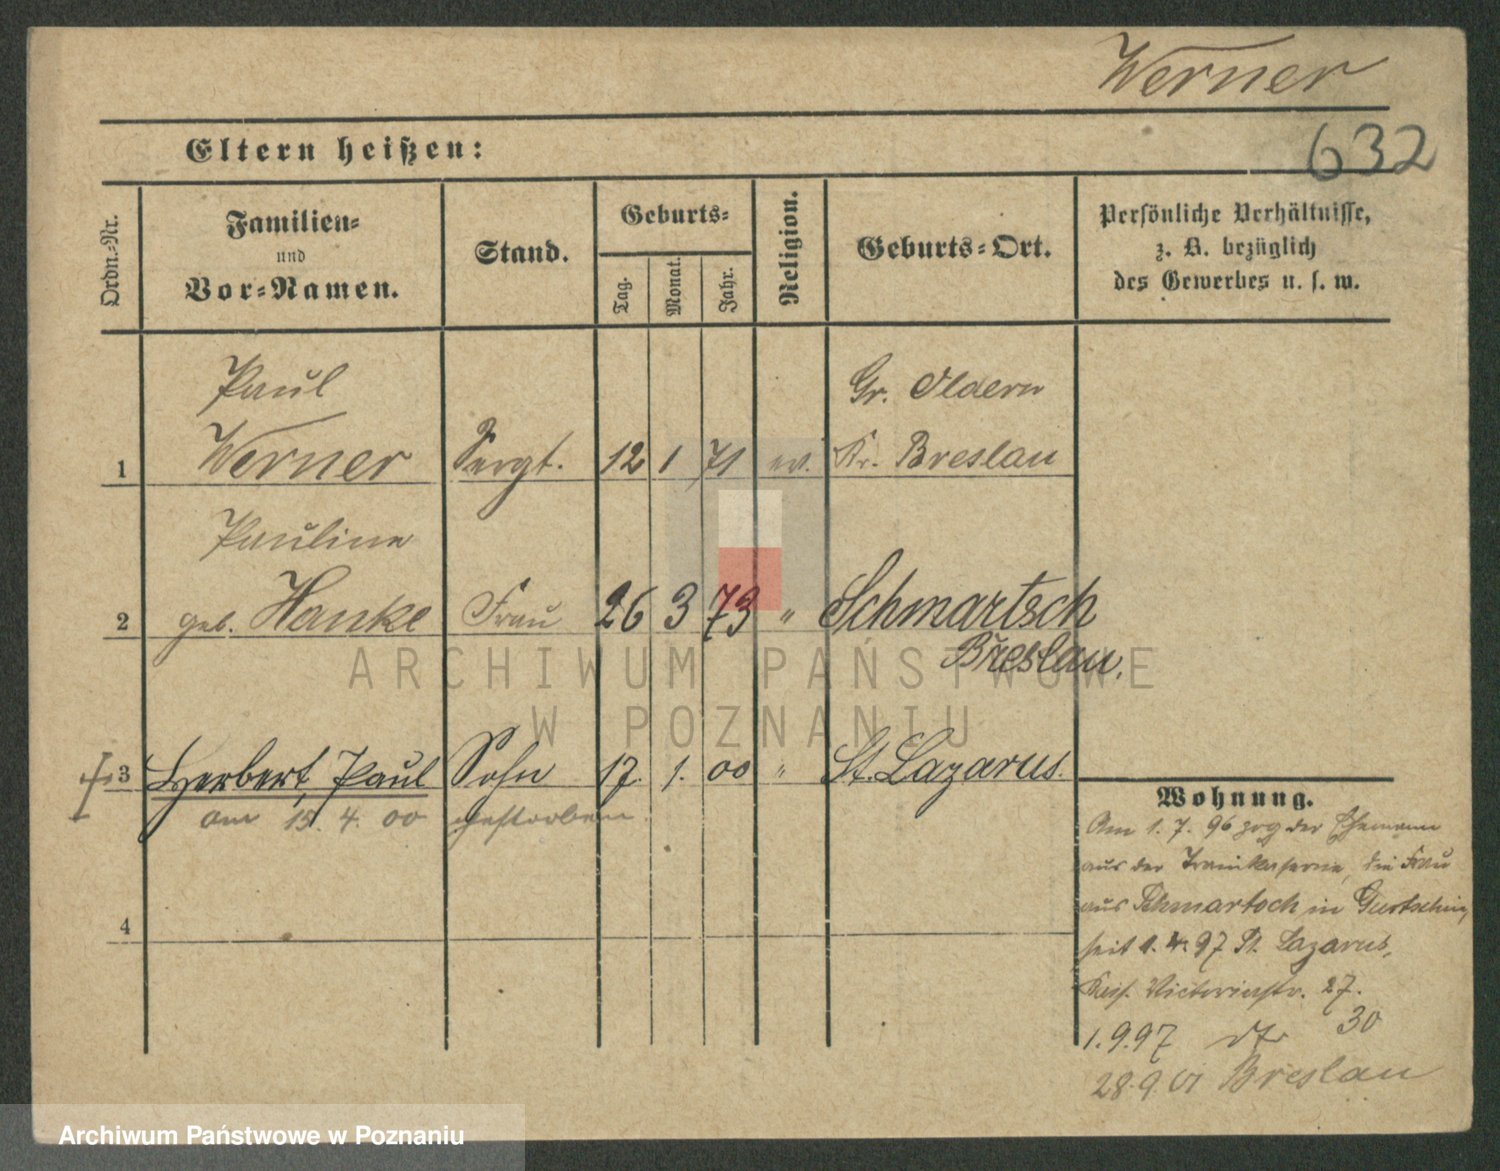 Werner
632
Eltern heißen:
Ordn.-Nr.
Familien-
und
Vor-Namen.
Stand.
Geburts-
Tag.
Monat.
Jahr.
Religion.
Geburts-Ort.
Persönliche Verhältnisse,
z. B. bezüglich
des Gewerbes u. s. w.
Paul
Gr.
1 Werner Sergt. 12 1 71 ev. Kr. Breslau
Pauline
2 geb. Hanke Frau 26 3 73 " Schmartsch
Breslau.
3 Herbert, Paul Sohn 17. 1. 00 " St. Lazarus.
am 15. 4. 00 gestorben.
4
Wohnung.
Am 1. 7. 96 zog der Ehemann
aus der Trainkaserne, die Frau
aus Schmartsch in Gurtschin,
seit 1. 4. 97 St. Lazarus,
Kais. Victoriastr. 27.
1.9.97 dto 30
28.9.01 Breslau
ARCHIWUM PAŃSTWOWE
W POZNANIU
Archiwum Państwowe w Poznaniu